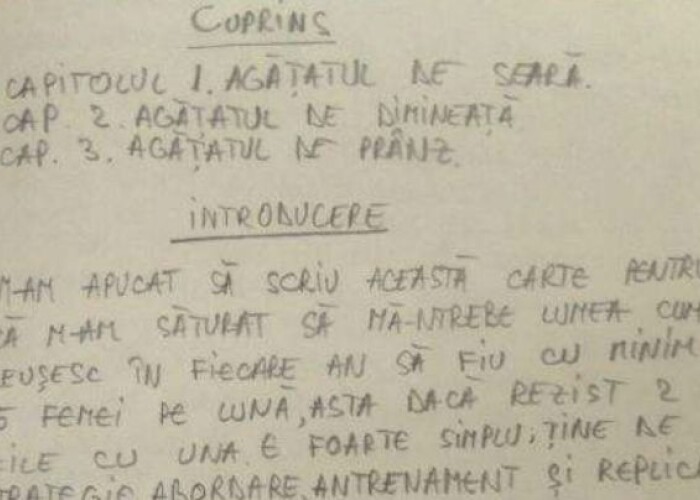 CUPRINS
CAPITOLUL 1. AGĂȚATUL DE SEARĂ.
CAP. 2. AGĂȚATUL DE DIMINEAȚĂ
CAP. 3. AGĂȚATUL DE PRÂNZ.
INTRODUCERE
M-AM APUCAT SĂ SCRIU ACEASTĂ CARTE PENTRU
CĂ M-AM SĂTURAT SĂ MĂ-NTREBE LUMEA CUM
EUȘESC ÎN FIECARE AN SĂ FIU CU MINIM
5 FEMEI PE LUNĂ, ASTA DACĂ REZIST 2
ILE CU UNA. E FOARTE SIMPLU; ȚINE DE
TRATEGIE, ABORDARE, ANTRENAMENT ȘI REPLICA